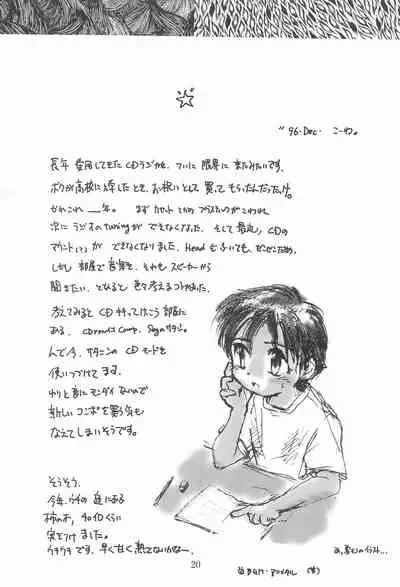 '96・Dec. こーわ。
長年 愛用してきた CDラジカセ、ついに 限界に きたみたいです。
ボクが高校に入学したとき、お祝いとして 買って もらったんだったけ。
かれこれ__年。 まず カセット のプラスティックがこわれ
次に ラジオのtuningが できなくなった。 そして最近、CDの
マウント(?)が できなくなりました。Head もふいても、ぜんぜんだめ。
しかし 部屋で 音楽を、それも スピーカーから
聞きたい、となると 色々考えまして
考えてみると CD 付って けっこう 部屋に
ある。 Segaサターン。
んで今、サターンの CD モードを
使いつづけて ます。
わりと音に モンダイ ないので
新しい コンポを 買う気も
なえて しまいそうです。
そうそう。
今年、ウチの 庭にある
柿の木、 くらい
実をつけ ました。
ウチウチです。 早く 熟てないかなー。
20